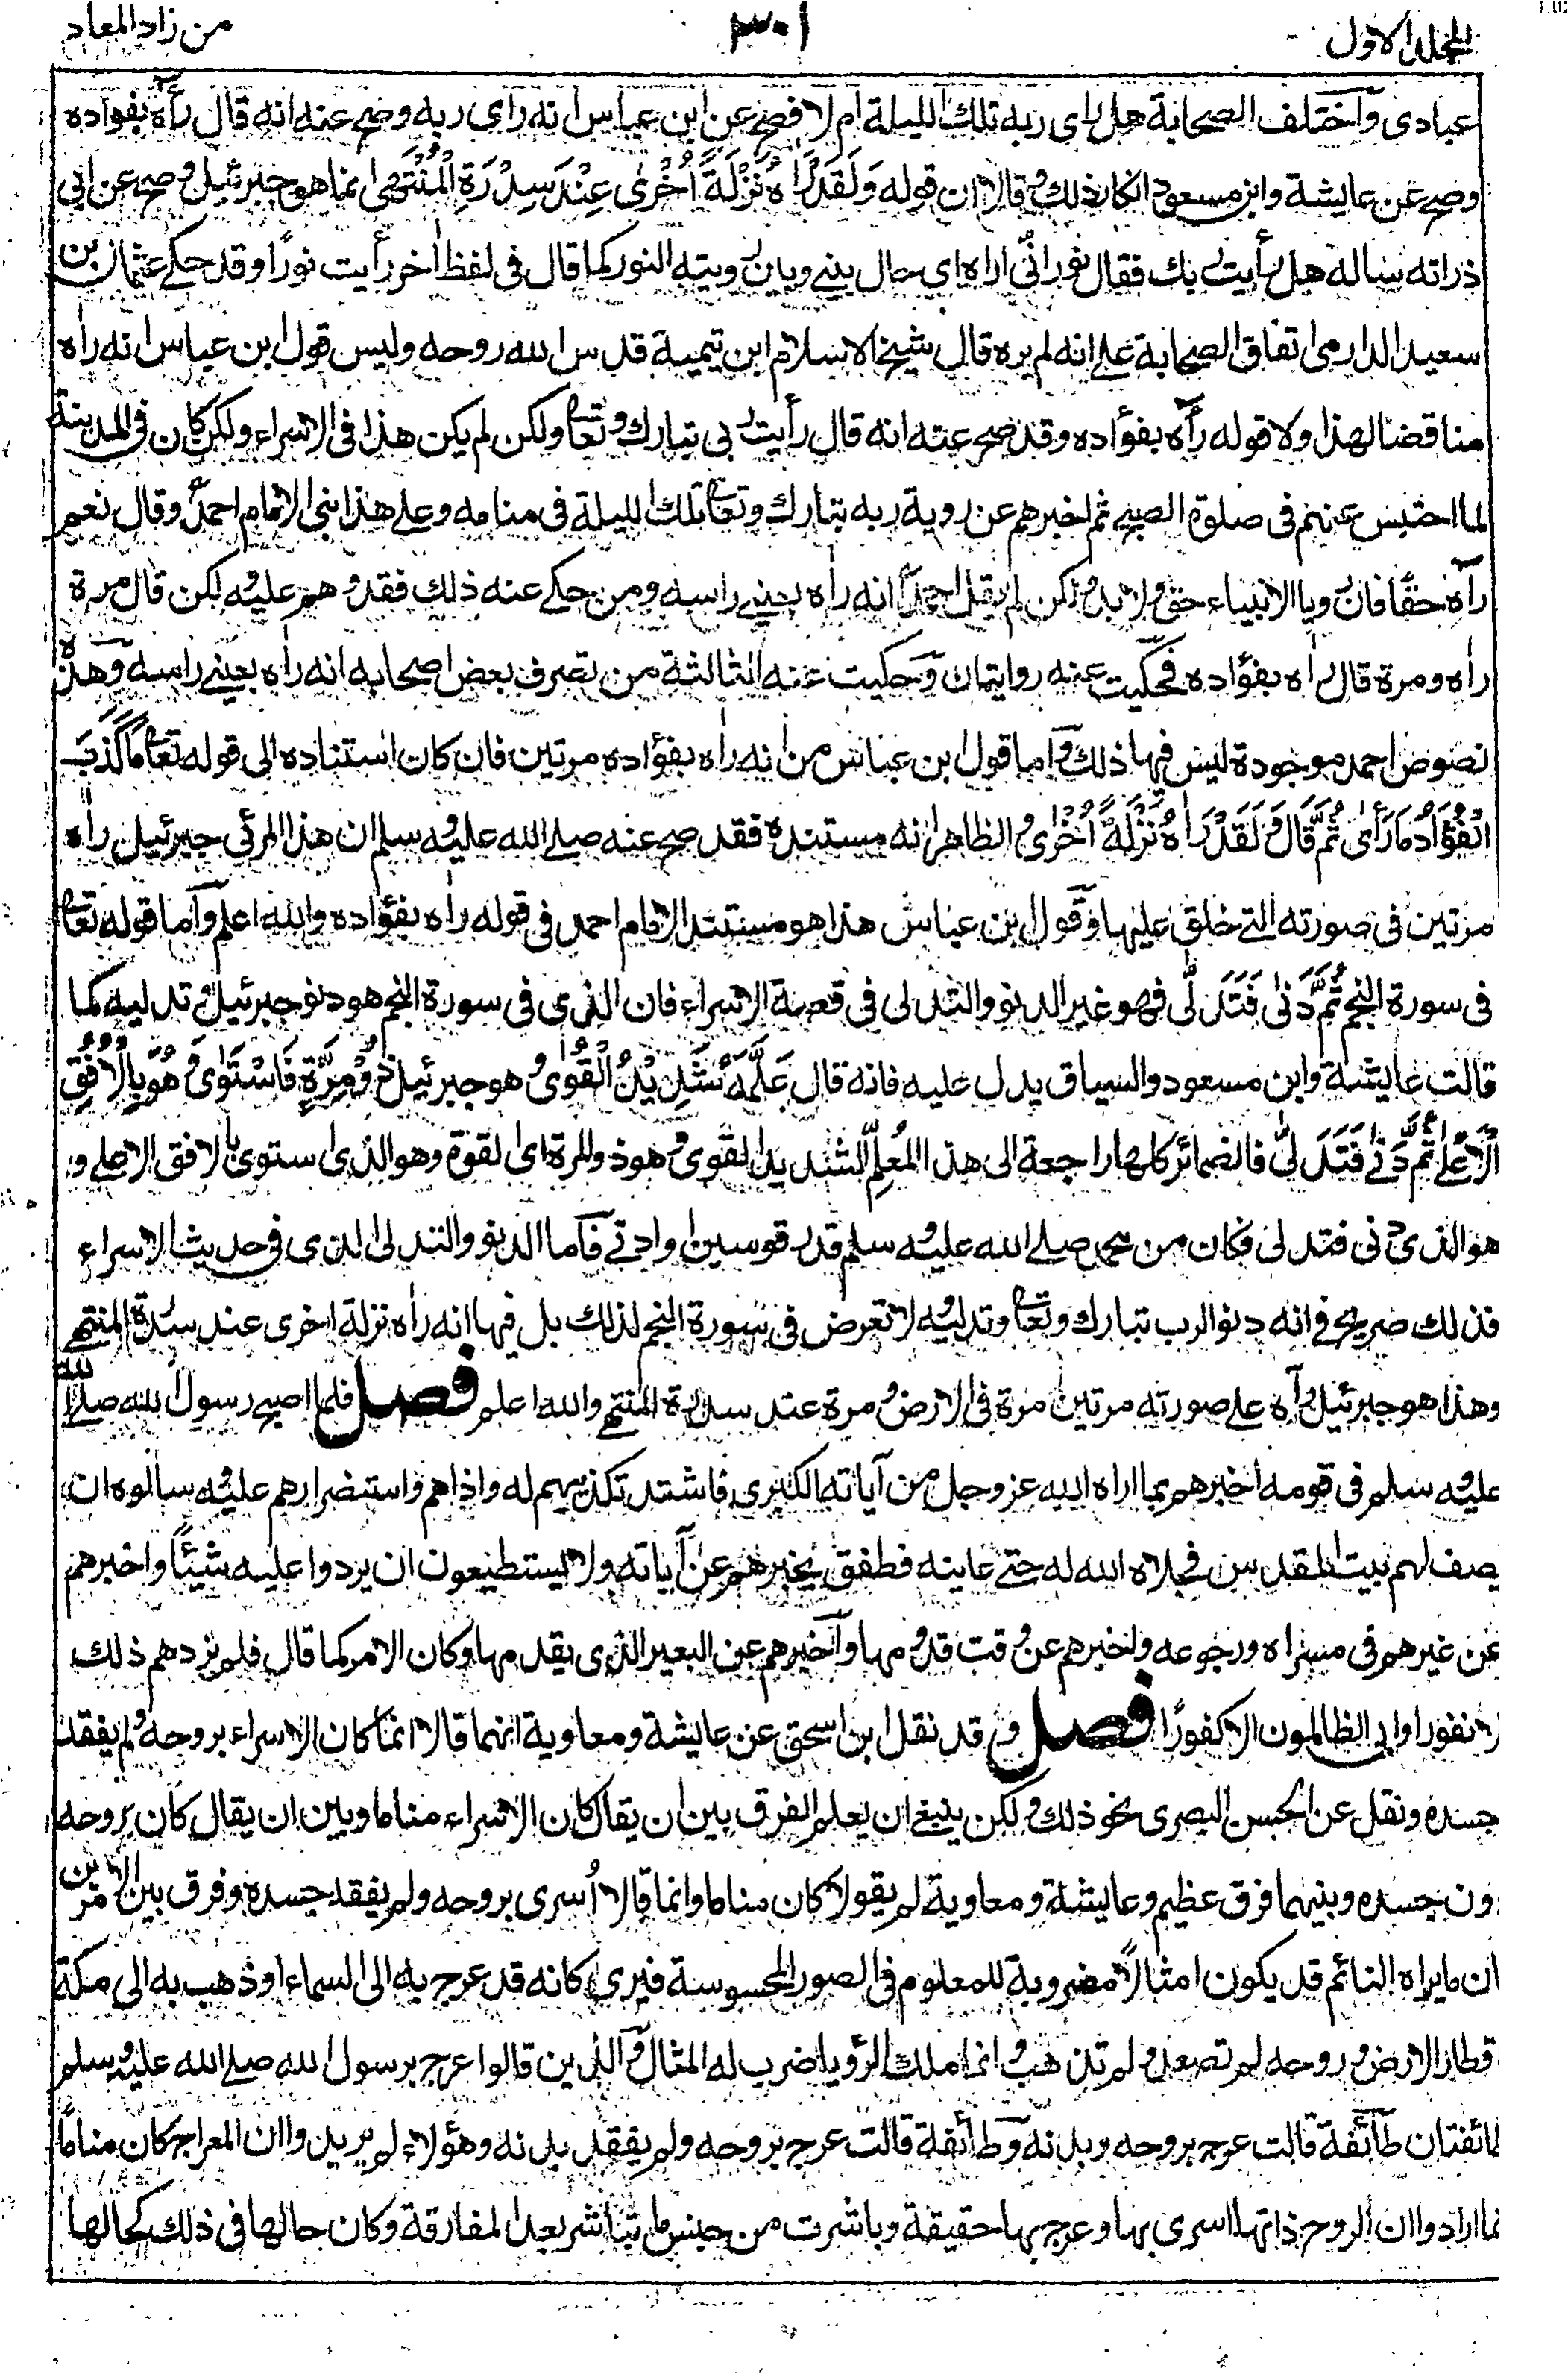 المجلد الاول ٣٠١ من زاد المعاد
عبادى وَاختلف الصحابة هل راى ربه تلك الليلة ام لا فصح عن ابن عباس انه راى ربه وصح عنه انه قال رآه بفواده
وصح عن عايشة وابن مسعود انكار ذلك وقالا ان قوله وَلَقَدْ رَاٰهُ نَزْلَةً اُخْرٰى عِنْدَ سِدْرَةِ الْمُنْتَهٰى انما هو جبرئيل وصح عن ابى
ذر انه ساله هل رأيت ربك فقال نور انّى اراه اى حال بينے وبين رويته النور كما قال فى لفظ اٰخر رأيت نورًا وقد حكے عثمان بن
سعيد الدارمى اتفاق الصحابة علے انه لم يره قال شيخ الاسلام ابن تيمية قدس الله روحه وليس قول ابن عباس انه راٰه
مناقضا لهذا ولا قوله رآه بفؤاده وقد صح عنه انه قال رأيت ربى تبارك وتعالى ولكن لم يكن هذا فى الاسراء ولكن كان فى المدينة
لما احتبس عنهم فى صلوة الصبح ثم اخبرهم عن روية ربه تبارك وتعالى تلك الليلة فى منامه وعلے هذا بنى الامام احمد وقال نعم
رآه حقًا فان رويا الانبياء حق ولا بد ولكن لم يقل احمد انه راٰه بعينے راسه ومن حكے عنه ذلك فقد وهم عليه ولكن قال مرة
راٰه ومرة قال راٰه بفؤاده فحكيت عنه روايتان وَحكيت عنه الثالثة من تصرف بعض اصحابه انه راٰه بعينے راسه وَهذه
نصوص احمد موجودة ليس فيها ذلك وَاما قول ابن عباس من انه راٰه بفؤاده مرتين فان كان استناده الى قوله تعالى مَا كَذَبَ
الْفُؤَادُ مَا رَأٰى ثُمَّ قَالَ وَلَقَدْ رَاٰهُ نَزْلَةً اُخْرٰى والظاهر انه مستنده فقد صح عنه صلے الله عليه وسلم ان هذا المرئى جبرئيل راٰه
مرتين فى صورته التے خلق عليها وَقول ابن عباس هذا هو مستند الامام احمد فى قوله راٰه بفؤاده والله اعلم وَاما قوله تعالى
فى سورة النجم ثُمَّ دَنٰى فَتَدَلّٰى فهو غير الدنو والتدلى فى قصة الاسراء فان الذى فى سورة النجم هو دنو جبرئيل وتدليه كما
قالت عايشة وابن مسعود والسياق يدل عليه فانه قال عَلَّمَهٗ شَدِيْدُ الْقُوٰى وهو جبرئيل ذُوْ مِرَّةٍ فَاسْتَوٰى وَهُوَ بِالْاُفُقِ
الْاَعْلٰے ثُمَّ دَنٰے فَتَدَلّٰى فالضمائر كلها راجعة الى هذا المُعلِّم الشديد القوى وهو ذو المرة اى القوة وهو الذى استوى بالافق الاعلے و
هو الذى دنى فتدلى فكان من محمد صلے الله عليه وسلم قدر قوسين او ادنے فَاما الدنو والتدلى الذى فى حديث الاسراء
فذلك صريح فى انه دنو الرب تبارك وتعالى وتدليه لا تعرض فى سورة النجم لذلك بل فيها انه راٰه نزلة اخرى عند سدرة المنتهے
وهذا هو جبرئيل راٰه علے صورته مرتين مرة فى الارض ومرة عند سدرة المنتهے والله اعلم فصل فلما اصبح رسول الله صلے الله
عليه وسلم فى قومه اخبرهم بما اراه الله عز وجل من آياته الكبرى فاشتد تكذيبهم له واذاهم واستضرارهم عليه وسالوه ان
يصف لهم بيت المقدس فجلاه الله له حتے عاينه فطفق يخبرهم عن آياته ولا يستطيعون ان يردوا عليه شيئًا واخبرهم
عن عيرهم فى مسراه ورجوعه واخبرهم عن وقت قدومها وَاخبرهم عن البعير الذى يقدمها وكان الامر كما قال فلم يزدهم ذلك
الا نفورا وابى الظالمون الا كفورًا فصل وقد نقل ابن اسحق عن عايشة ومعاوية انهما قالا انما كان الاسراء بروحه ولم يفقد
جسده ونقل عن الحسن البصرى نحو ذلك ولكن ينبغے ان يعلم الفرق بين ان يقال كان الاسراء مناما وبين ان يقال كان بروحه
دون جسده وبينهما فرق عظيم وعايشة ومعاوية لم يقولا كان مناما وانما قالا اُسرى بروحه ولم يفقد جسده وفرق بين الامرين
ان ما يراه النائم قد يكون امثالًا مضروبة للمعلوم فى الصور المحسوسة فيرى كانه قد عرج به الى السماء او ذهب به الى مكة
اقطار الارض وروحه لم تصعد ولم تذهب وانما ملك الرؤيا ضرب له المثال وَالذين قالوا عرج برسول الله صلے الله عليه وسلم
طائفتان طَائفة قالت عرج بروحه وبدنه وَطائفة قالت عرج بروحه ولم يفقد بدنه وهؤلاء لم يريدوا ان المعراج كان منامًا
انما ارادوا ان الروح ذاتها اسرى بها وعرج بها حقيقة وباشرت من جنس ما تباشر بعد المفارقة وكان حالها فى ذلك كحالها